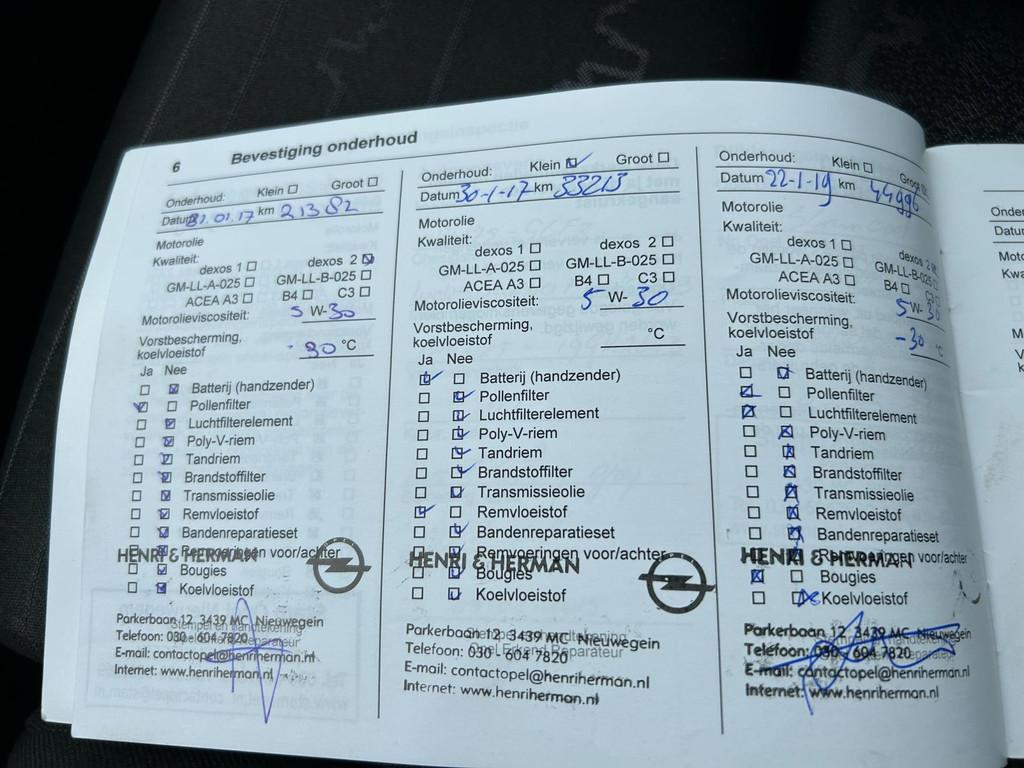 6 Bevestiging onderhoud
Onderhoud: Klein Groot
Datum 31.01.17 km 21382
Motorolie
Kwaliteit:
dexos 1 dexos 2
GM-LL-A-025 GM-LL-B-025
ACEA A3 B4 C3
Motorolieviscositeit: 5 W-30
Vorstbescherming,
koelvloeistof -30 °C
Ja Nee
Batterij (handzender)
Pollenfilter
Luchtfilterelement
Poly-V-riem
Tandriem
Brandstoffilter
Transmissieolie
Remvloeistof
Bandenreparatieset
Remvoeringen voor/achter
HENRI & HERMAN
Bougies
Koelvloeistof
Parkerbaan 12 3439 MC Nieuwegein
Telefoon: 030 - 604 7820
E-mail: contactopel@henriherman.nl
Internet: www.henriherman.nl
Onderhoud: Klein Groot
Datum 30-1-17 km 33213
Motorolie
Kwaliteit:
dexos 1 dexos 2
GM-LL-A-025 GM-LL-B-025
ACEA A3 B4 C3
Motorolieviscositeit: 5 W-30
Vorstbescherming,
koelvloeistof °C
Ja Nee
Batterij (handzender)
Pollenfilter
Luchtfilterelement
Poly-V-riem
Tandriem
Brandstoffilter
Transmissieolie
Remvloeistof
Bandenreparatieset
Remvoeringen voor/achter
HENRI & HERMAN
Bougies
Koelvloeistof
Parkerbaan 12 3439 MC Nieuwegein
Telefoon: 030 - 604 7820
E-mail: contactopel@henriherman.nl
Internet: www.henriherman.nl
Onderhoud: Klein
Datum 22-1-19 km 44996
Motorolie
Kwaliteit:
dexos 1 dexos 2
GM-LL-A-025 GM-LL-B-025
ACEA A3 B4 C3
Motorolieviscositeit: 5 W-30
Vorstbescherming,
koelvloeistof -30 °C
Ja Nee
Batterij (handzender)
Pollenfilter
Luchtfilterelement
Poly-V-riem
Tandriem
Brandstoffilter
Transmissieolie
Remvloeistof
Bandenreparatieset
Remvoeringen voor/achter
HENRI & HERMAN
Bougies
Koelvloeistof
Parkerbaan 12 3439 MC Nieuwegein
Telefoon: 030 - 604 7820
E-mail: contactopel@henriherman.nl
Internet: www.henriherman.nl